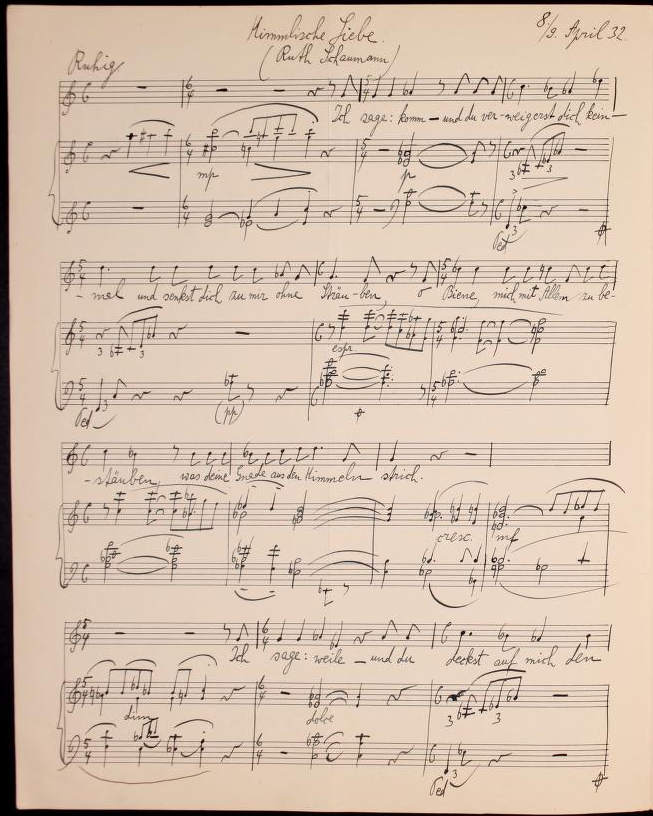 Himmlische Liebe.
8./9. April 32.
(Ruth Schaumann)
Ruhig
Ich sage: komm – und du ver-weigerst dich kein-
mp
p
Ped
- mal und senkst dich zu mir ohne Sträu-ben, o Biene, mich mit Allem zu be-
espr
Ped
(pp)
- stäuben, was deine Gnade aus den Himmeln strich.
cresc.
mf
Ich sage: weile – und du deckst auf mich den
dim
dolce
Ped